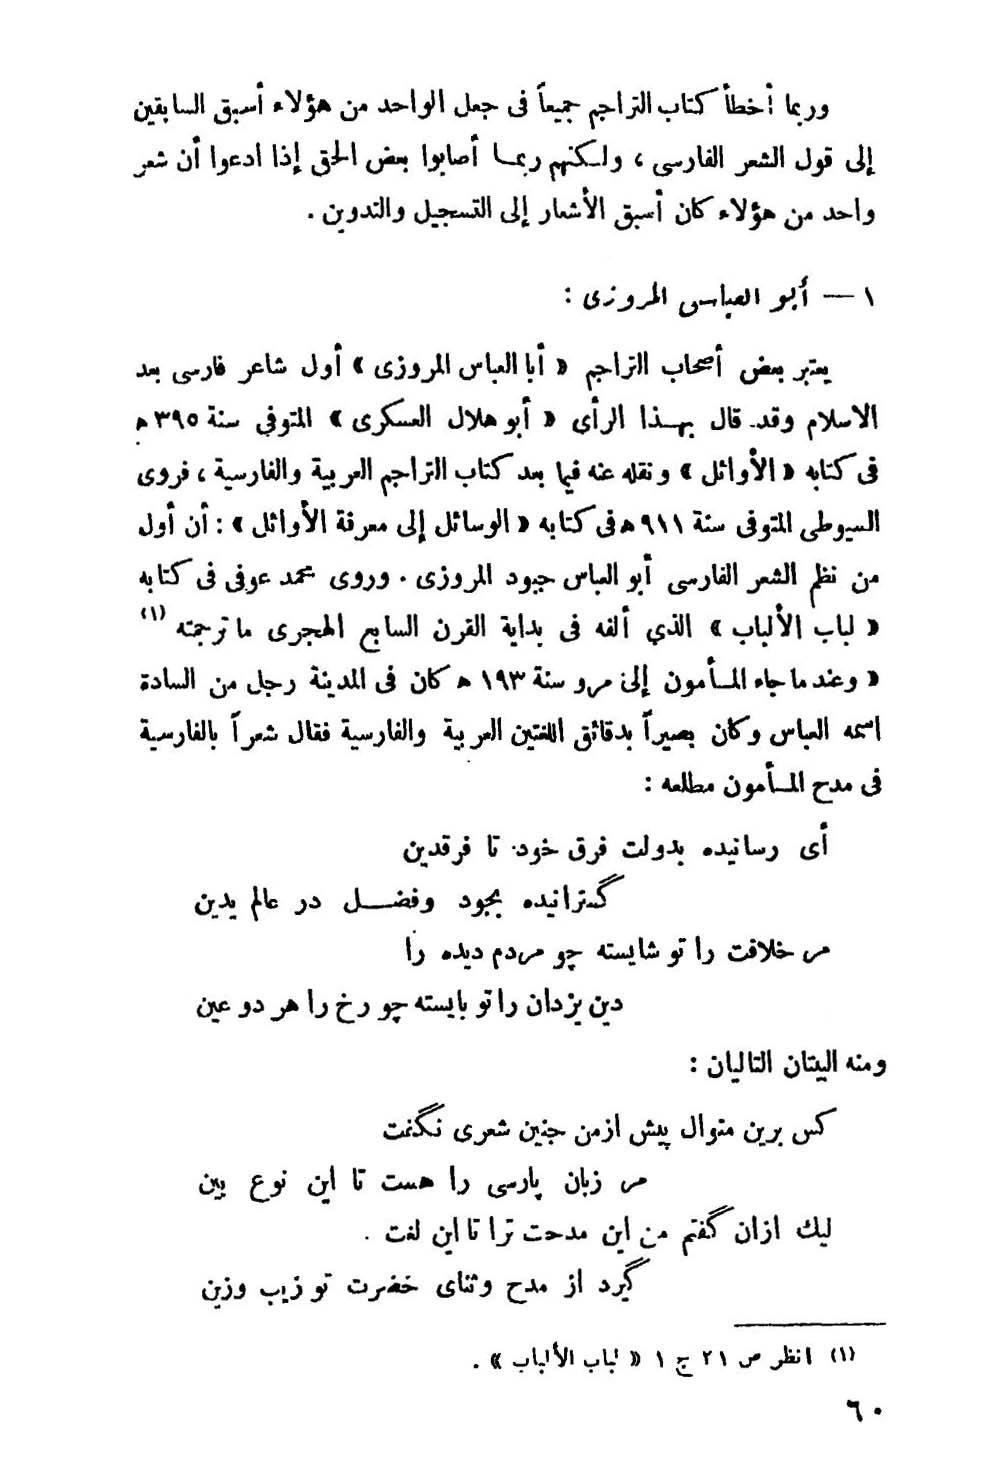 وربما أخطأ كتاب التراجم جميعاً فى جعل الواحد من هؤلاء أسبق السابقين
إلى قول الشعر الفارسى ، ولكنهم ربما أصابوا بعض الحق إذا ادعوا أن شعر
واحد من هؤلاء كان أسبق الأشعار إلى التسجيل والتدوين .
١ — أبو العباسى المروزى :
يعتبر بعض أصحاب التراجم « أبا العباس المروزى » أول شاعر فارسى بعد
الاسلام وقد قال بهذا الرأى « أبو هلال العسكرى » المتوفى سنة ٣٩٥ ه
فى كتابه « الأوائل » ونقله عنه فيما بعد كتاب التراجم العربية والفارسية ، فروى
السيوطى المتوفى سنة ٩١١ ه فى كتابه « الوسائل إلى معرفة الأوائل » : أن أول
من نظم الشعر الفارسى أبو العباس جبود المروزى . وروى محمد عوفى فى كتابه
« لباب الألباب » الذي ألفه فى بداية القرن السابع الهجرى ما ترجمته (١)
« وعندما جاء المأمون إلى مرو سنة ١٩٣ ه كان فى المدينة رجل من السادة
اسمه العباس وكان بصيراً بدقائق اللغتين العربية والفارسية فقال شعراً بالفارسية
فى مدح المأمون مطلعه :
أى رسانيده بدولت فرق خود تا فرقدين
گسترانيده بجود وفضل در عالم يدين
مر خلافت را تو شايسته چو مردم ديده را
دين يزدان را تو بايسته چو رخ را هر دو عين
ومنه البيتان التاليان :
كس برين منوال پيش ازمن جنين شعرى نگفت
مر زبان پارسى را هست تا اين نوع بين
ليك ازان گفتم من اين مدحت ترا تا اين لغت .
گيرد از مدح وثناى حضرت تو زيب وزين
(١) انظر ص ٢١ ج ١ « لباب الألباب » .
٦٠